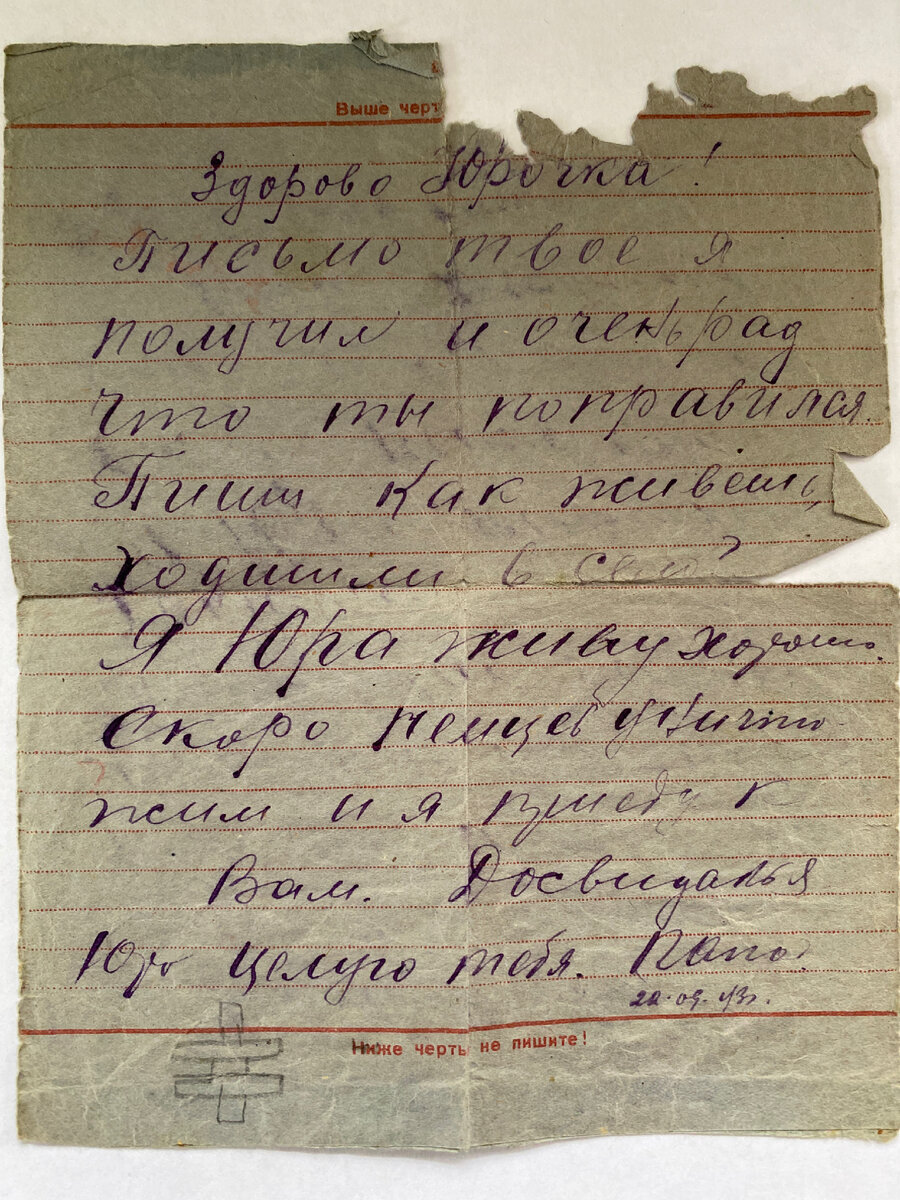 Выше черт
Здорово Юрочка!
Письмо твое я
получил и очень рад
что ты поправился.
Пиши как живешь,
ходишили в
Я Юра живу хорошо.
Скоро немцев уничто-
жим и я приеду к
Вам. Досвиданья
Юра целую тебя. Папа.
22.09.43г.
Ниже черты не пишите!